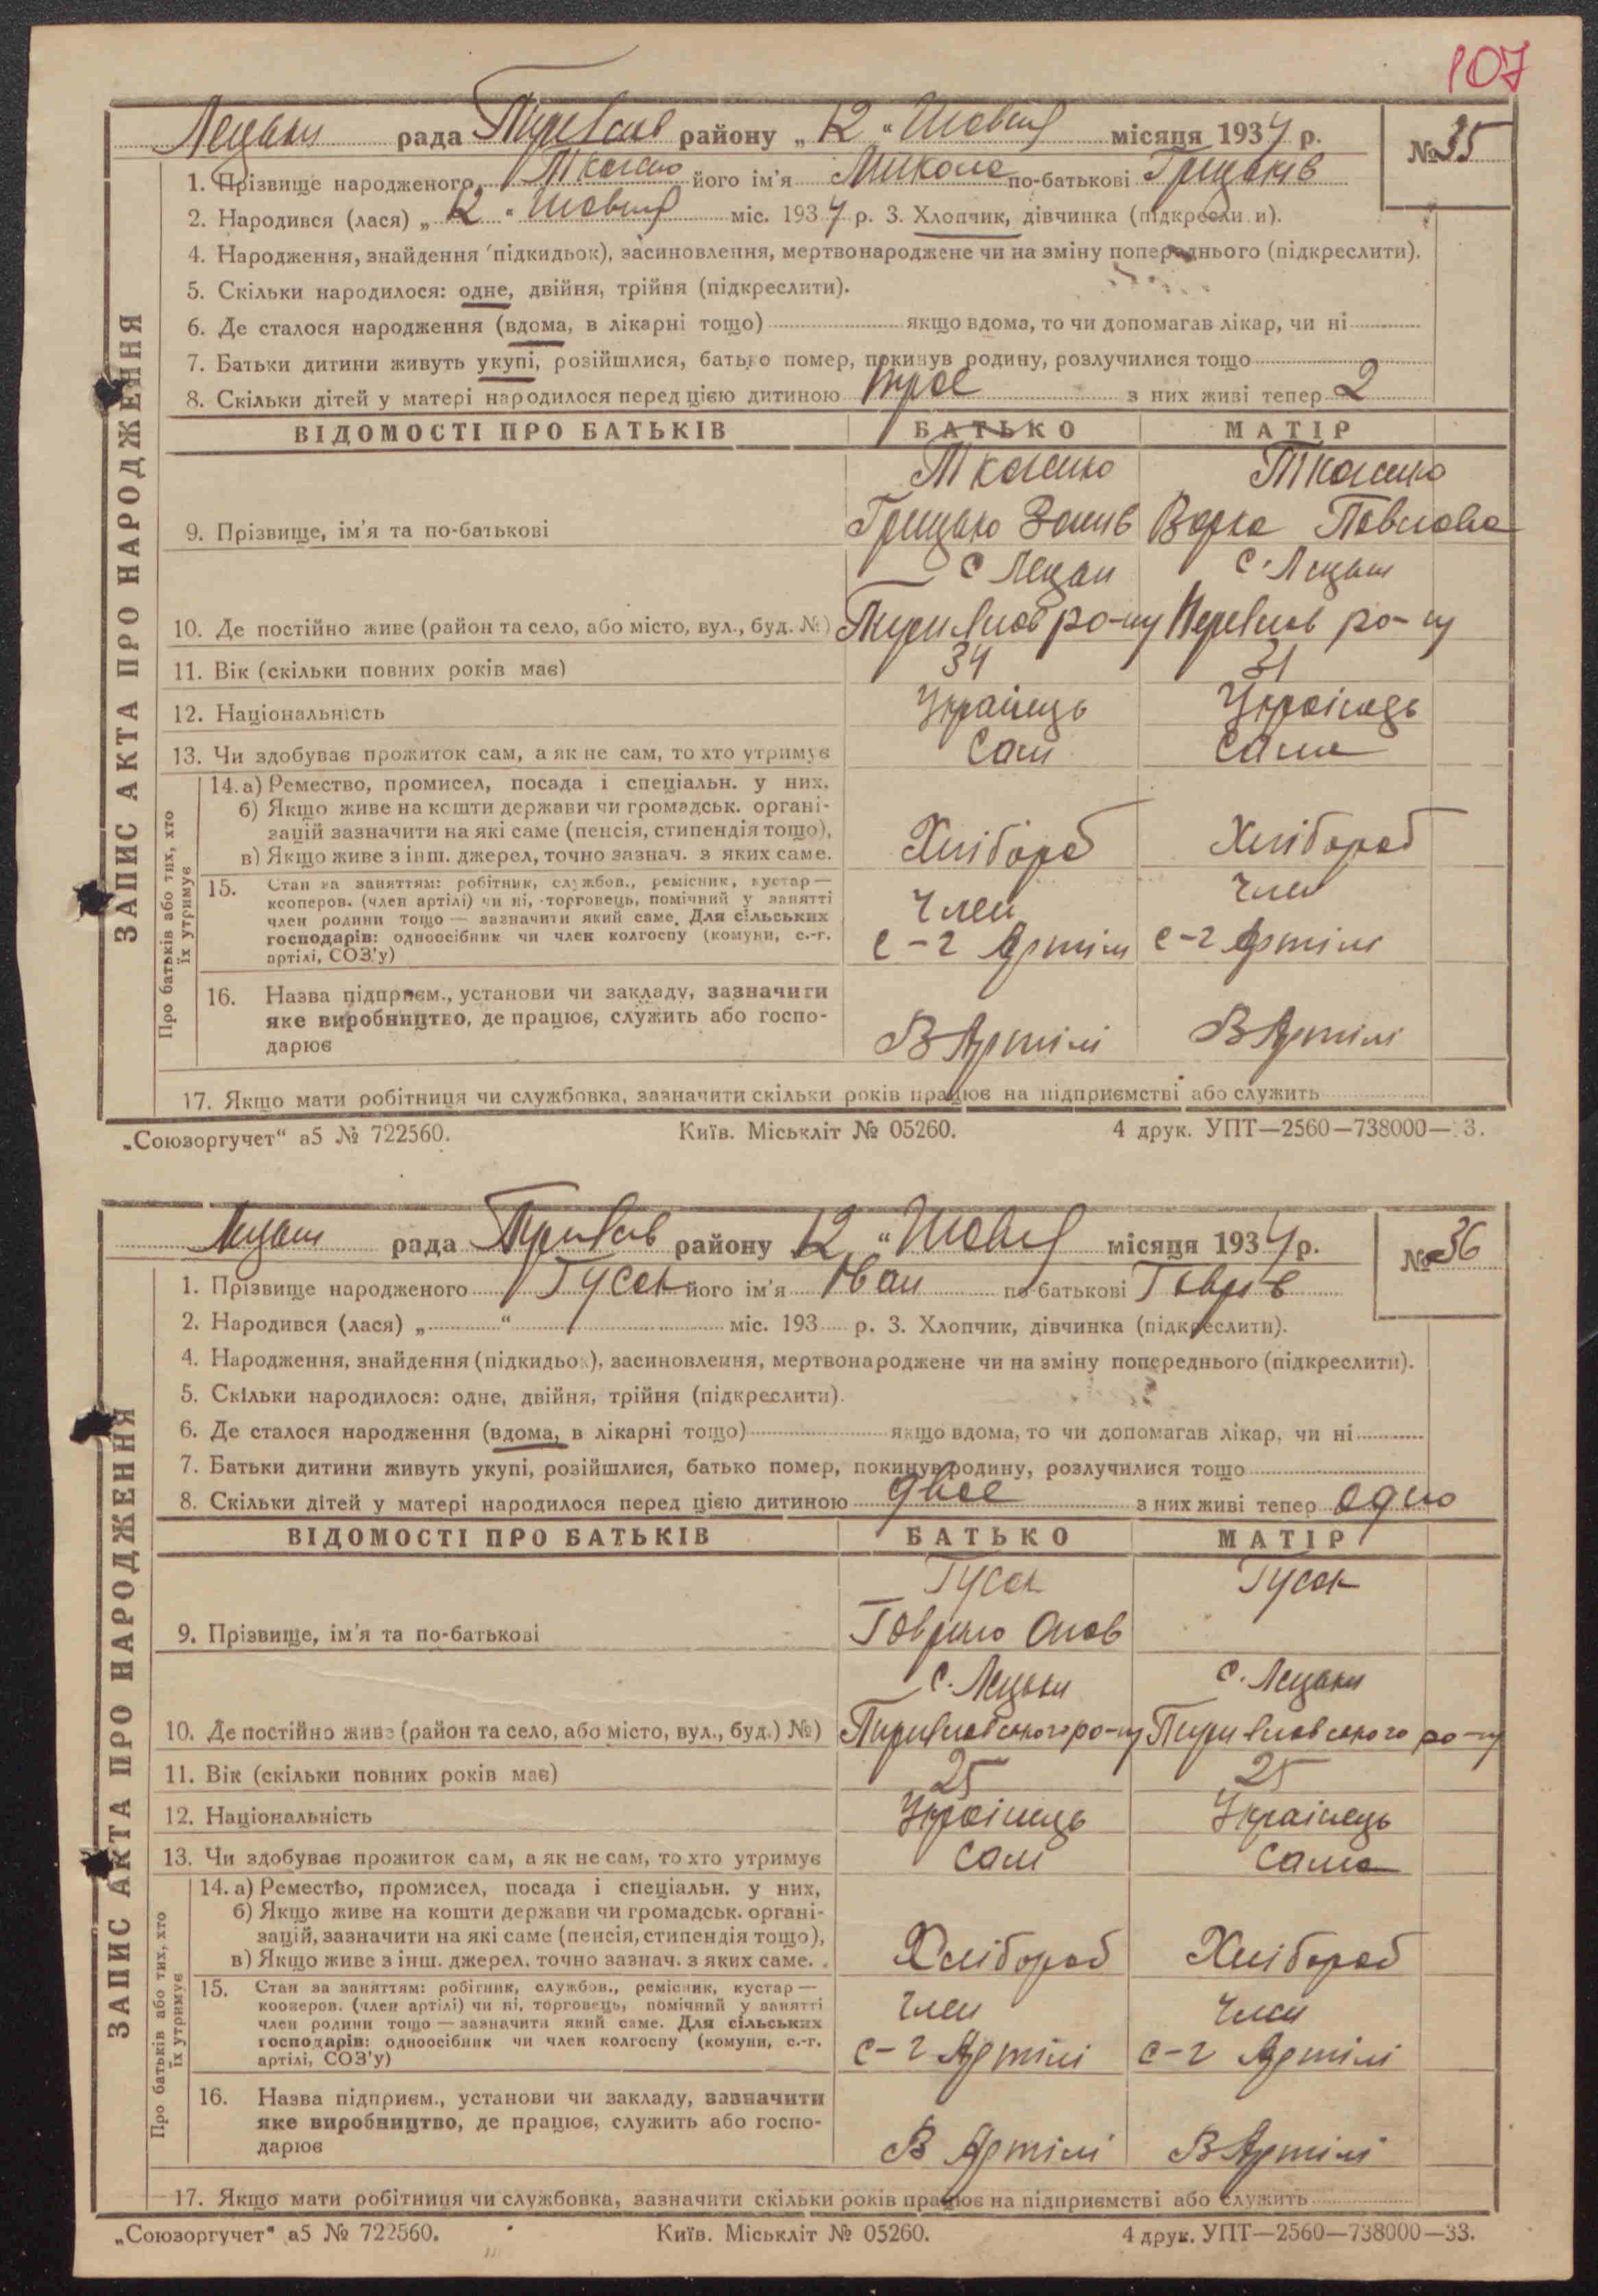 107
Лецьки рада району „12“ місяця 1934 р. № 35
1. Прізвище народженого Ткаченко його ім'я Микола по-батькові Грицьків
2. Народився (лася) „12“ міс. 1934 р. 3. Хлопчик, дівчинка (підкреслити).
4. Народження, знайдення (підкидьок), засиновлення, мертвонароджене чи на зміну попереднього (підкреслити).
5. Скільки народилося: одне, двійня, трійня (підкреслити).
6. Де сталося народження (вдома, в лікарні тощо) якщо вдома, то чи допомагав лікар, чи ні
7. Батьки дитини живуть укупі, розійшлися, батько помер, покинув родину, розлучилися тощо
8. Скільки дітей у матері народилося перед цією дитиною троє з них живі тепер 2
ВІДОМОСТІ ПРО БАТЬКІВ БАТЬКО МАТІР
Ткаченко Ткаченко
9. Прізвище, ім'я та по-батькові Грицько Варка Павлова
с Лецьки с. Лецьки
10. Де постійно живе (район та село, або місто, вул., буд. №) ро-ну ро-ну
11. Вік (скільки повних років має) 34 31
12. Національність Українець Українець
13. Чи здобуває прожиток сам, а як не сам, то хто утримує Сам Сама
14. а) Ремество, промисел, посада і спеціальн. у них,
б) Якщо живе на кошти держави чи громадськ. органі-
зацій зазначити на які саме (пенсія, стипендія тощо),
в) Якщо живе з інш. джерел, точно зазнач. з яких саме. Хлібороб Хлібороб
15. Стан за заняттям: робітник, службов., ремісник, кустар—
кооперов. (член артілі) чи ні, торговець, помічний у занятті
член родини тощо — зазначити який саме. Для сільських
господарів: одноосібник чи член колгоспу (комуни, с.-г.
артілі, СОЗ'у)
Член Член
с-г Артілі с-г Артілі
16. Назва підприєм., установи чи закладу, зазначити
яке виробництво, де працює, служить або госпо-
дарює В Артілі В Артілі
17. Якщо мати робітниця чи службовка, зазначити скільки років працює на підприємстві або служить
ЗАПИС АКТА ПРО НАРОДЖЕННЯ
Про батьків або тих, хто
їх утримує
„Союзоргучет“ а5 № 722560. Київ. Міськліт № 05260. 4 друк. УПТ—2560—738000— 3.
Лецьки рада району 12 “ місяця 1934 р. № 36
1. Прізвище народженого Гусак його ім'я Іван по батькові Гаврів
2. Народився (лася) „ “ міс. 193 р. 3. Хлопчик, дівчинка (підкреслити).
4. Народження, знайдення (підкидьок), засиновлення, мертвонароджене чи на зміну попереднього (підкреслити).
5. Скільки народилося: одне, двійня, трійня (підкреслити).
6. Де сталося народження (вдома, в лікарні тощо) якщо вдома, то чи допомагав лікар, чи ні
7. Батьки дитини живуть укупі, розійшлися, батько помер, покинув родину, розлучилися тощо
8. Скільки дітей у матері народилося перед цією дитиною двоє з них живі тепер одно
ВІДОМОСТІ ПРО БАТЬКІВ БАТЬКО МАТІР
Гусак Гусак
9. Прізвище, ім'я та по-батькові Гаврило
с. Лецьки с. Лецьки
10. Де постійно живе (район та село, або місто, вул., буд.) №) ро-ну ро-ну
11. Вік (скільки повних років має) 25 25
12. Національність Українець Українець
13. Чи здобуває прожиток сам, а як не сам, то хто утримує Сам Сама
14. а) Ремество, промисел, посада і спеціальн. у них,
б) Якщо живе на кошти держави чи громадськ. органі-
зацій, зазначити на які саме (пенсія, стипендія тощо),
в) Якщо живе з інш. джерел, точно зазнач. з яких саме. Хлібороб Хлібороб
15. Стан за заняттям: робітник, службов., ремісник, кустар—
кооперов. (член артілі) чи ні, торговець, помічний у занятті
член родини тощо — зазначити який саме. Для сільських
господарів: одноосібник чи член колгоспу (комуни, с.-г.
артілі, СОЗ'у)
Член Член
с-г Артілі с-г Артілі
16. Назва підприєм., установи чи закладу, зазначити
яке виробництво, де працює, служить або госпо-
дарює В Артілі В Артілі
17. Якщо мати робітниця чи службовка, зазначити скільки років працює на підприємстві або служить
ЗАПИС АКТА ПРО НАРОДЖЕННЯ
Про батьків або тих, хто
їх утримує
„Союзоргучет“ а5 № 722560. Київ. Міськліт № 05260. 4 друк. УПТ—2560—738000—33.